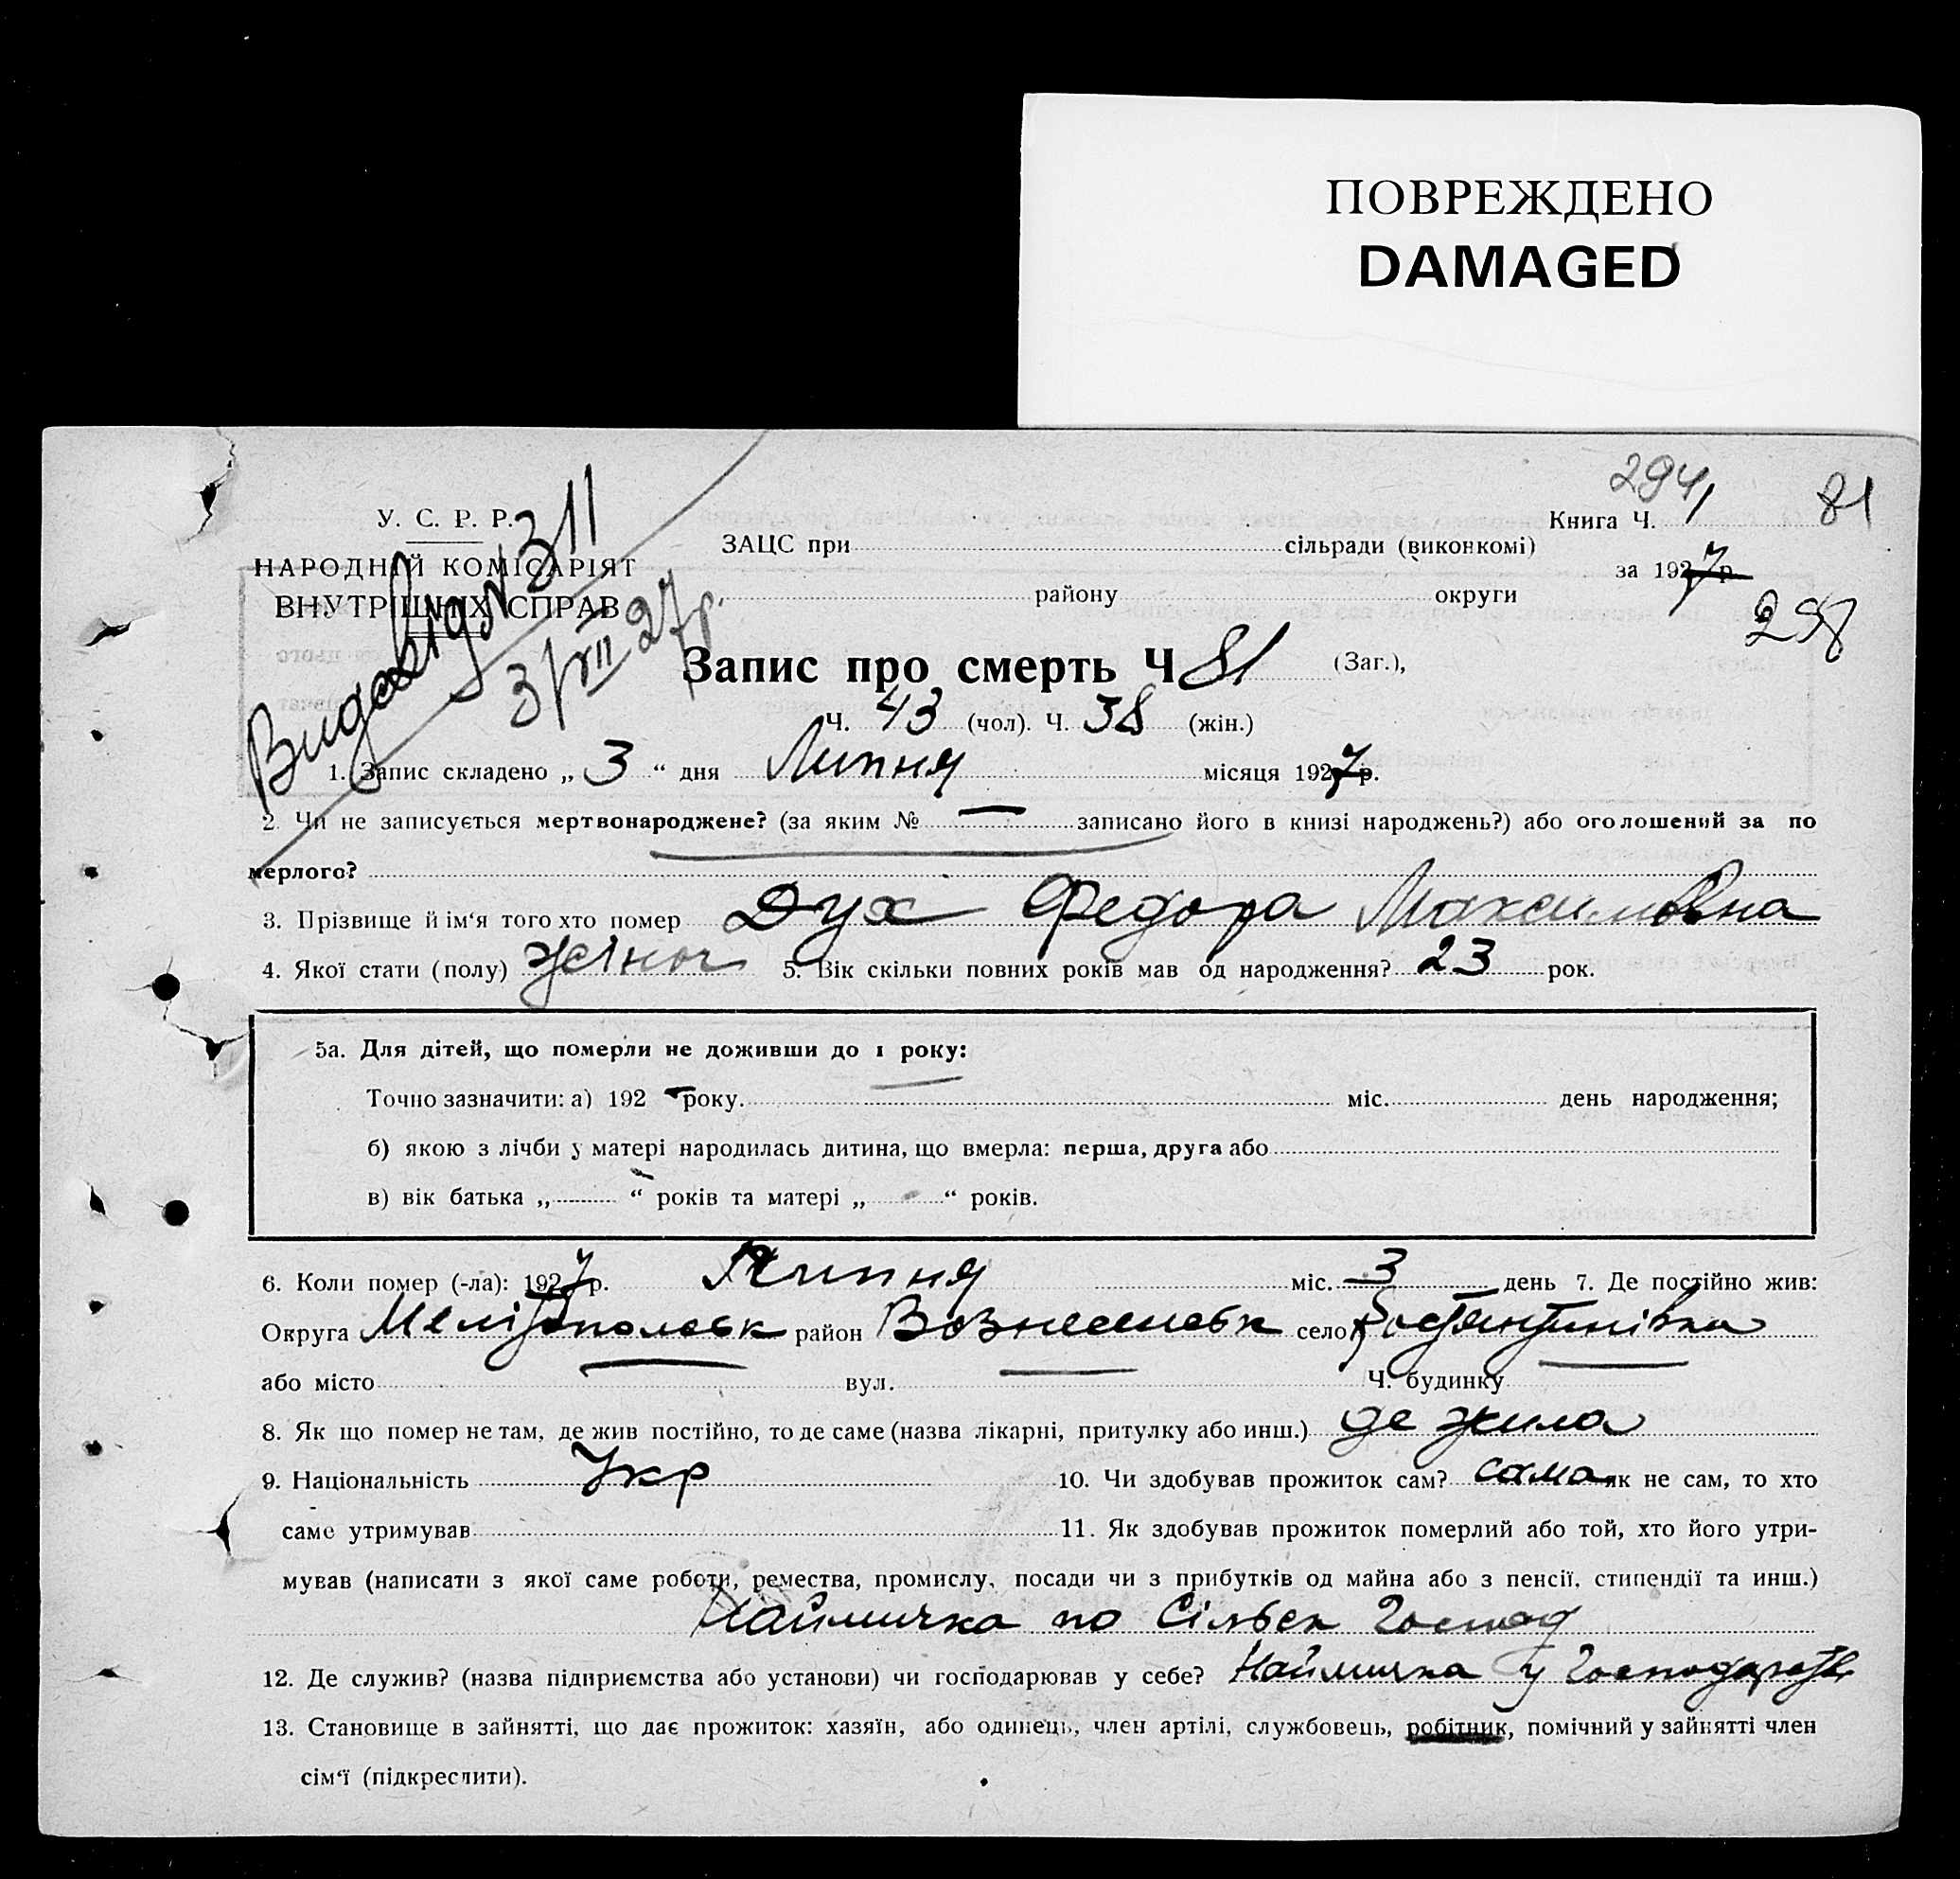 ПОВРЕЖДЕНО
DAMAGED
294
У. С. Р. Р.
Книга Ч. 81
НАРОДНІЙ КОМІСАРІЯТ
ВНУТРІШНІХ СПРАВ
№ 311
3/VII 27р.
ЗАЦС при сільради (виконкомі)
за 1927р.
району округи
Запис про смерть Ч 81 (Заг.),
Ч. 43 (чол). Ч. 38 (жін.)
1. Запис складено „ 3 “ дня Липня місяця 1927р.
2. Чи не записується мертвонароджене? (за яким № — записано його в книзі народжень?) або оголошений за по
мерлого?
3. Прізвище й ім‘я того хто помер Дух Федора Максимовна
4. Якої стати (полу) жіноч 5. Вік скільки повних років мав од народження? 23 рок.
5а. Для дітей, що померли не доживши до 1 року:
Точно зазначити: а) 192 року. міс. день народження;
б) якою з лічби у матері народилась дитина, що вмерла: перша, друга або
в) вік батька „ “ років та матері „ “ років.
6. Коли помер (-ла): 1927р. Липня міс. 3 день 7. Де постійно жив:
Округа Мелітопольськ район Вознесенськ село Костянтинівка
або місто вул. Ч. будинку
8. Як що помер не там, де жив постійно, то де саме (назва лікарні, притулку або инш.) де жила
9. Національність Укр 10. Чи здобував прожиток сам? сама як не сам, то хто
саме утримував 11. Як здобував прожиток померлий або той, хто його утри-
мував (написати з якої саме роботи, ремества, промислу, посади чи з прибутків од майна або з пенсії, стипендії та инш.)
Наймичка по Сільськ Господ
12. Де служив? (назва підприємства або установи) чи господарював у себе? Наймичка у Господарств
13. Становище в зайнятті, що дає прожиток: хазяїн, або одинець, член артілі, службовець, робітник, помічний у зайнятті член
сім‘ї (підкреслити).